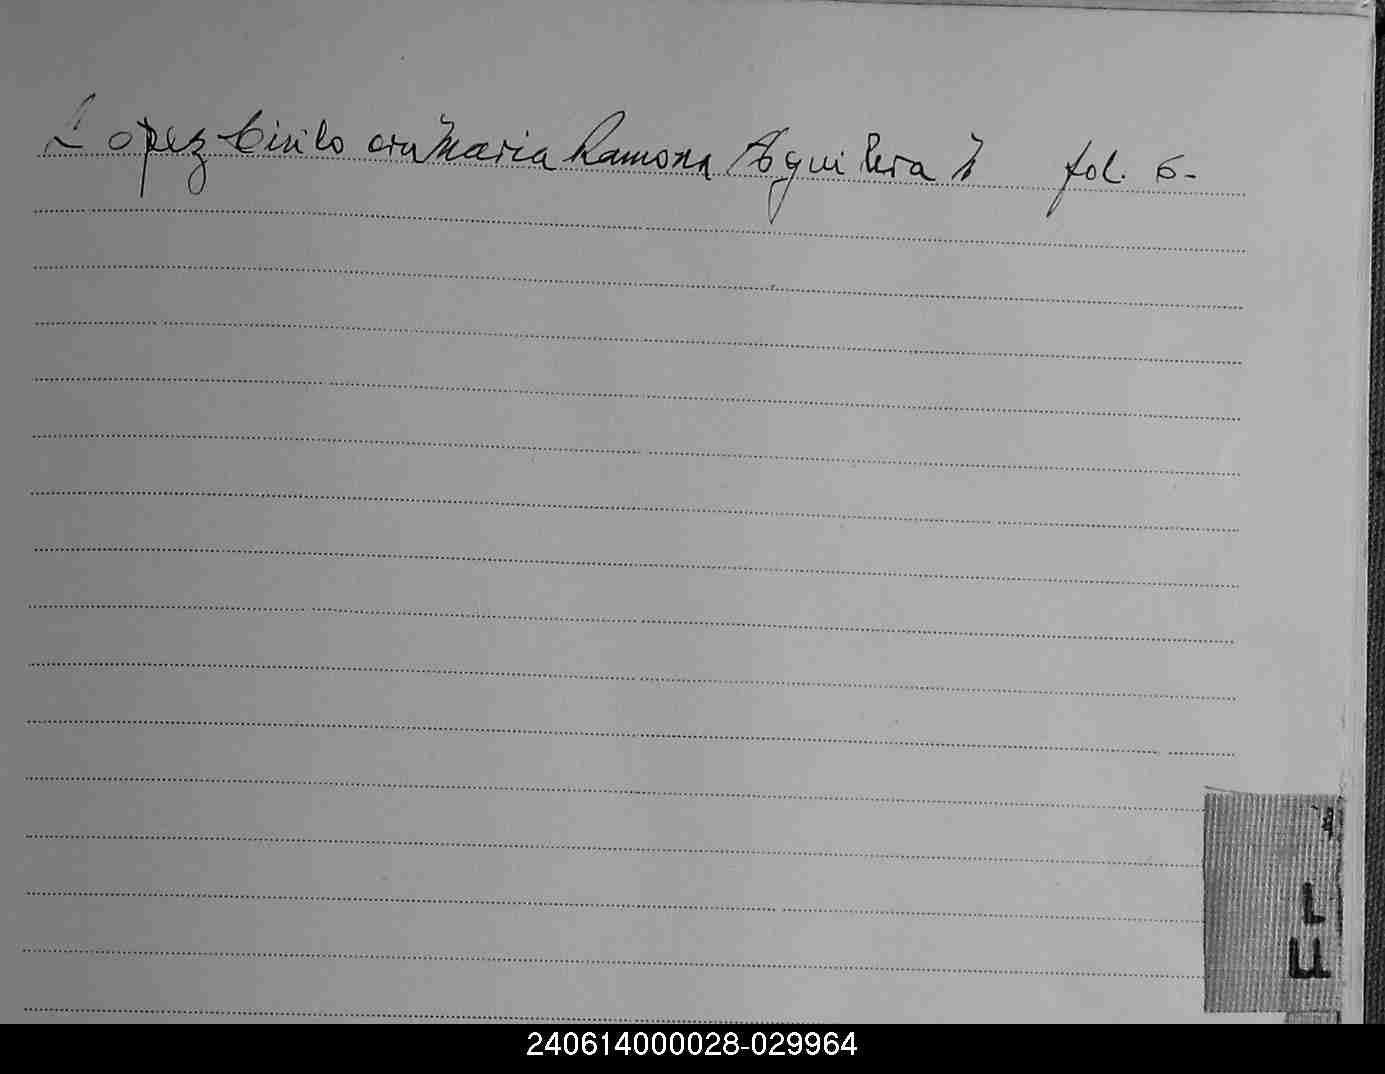 Lopez Cirilo con Maria Ramona Aguilera fol. 6-
L
LL
240614000028-029964